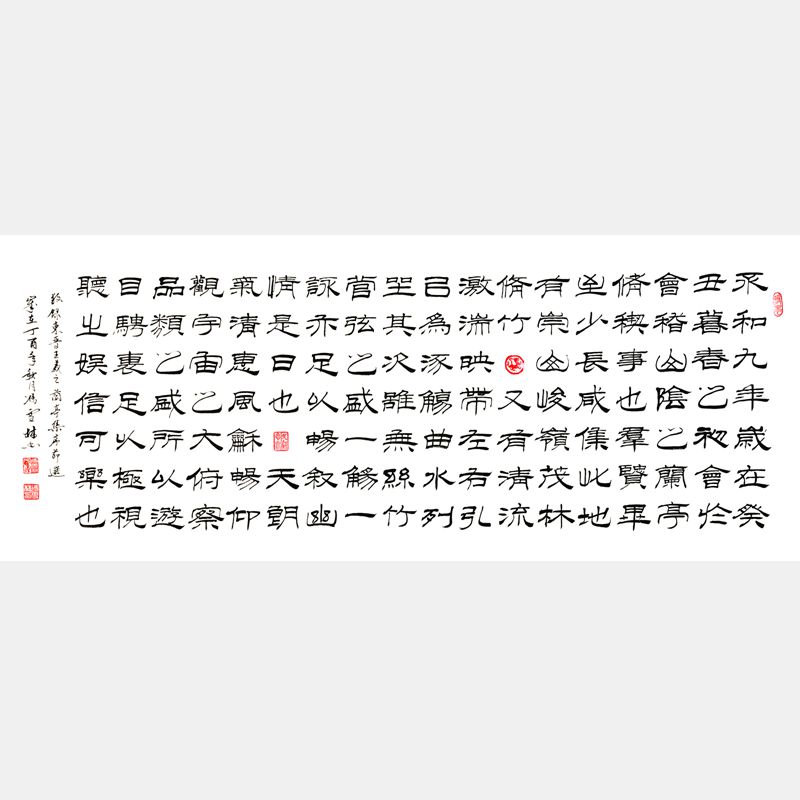 永和九年歲在癸
丑暮春之初會於
會稽山陰之蘭亭
脩稧事也羣賢畢
至少長咸集此地
有崇山峻嶺茂林
脩竹又有清流
激湍映帶左右引
㠯為流觴曲水列
坐其次雖無絲竹
管弦之盛一觴一
詠亦足以暢敘幽
情是日也天朗
氣清惠風龢暢仰
觀宇宙之大俯察
品類之盛所以遊
目騁褱足以極視
聽之娛信可樂也
敬錄東晉王羲之蘭亭集序節選
歲在丁酉年月馮雪書